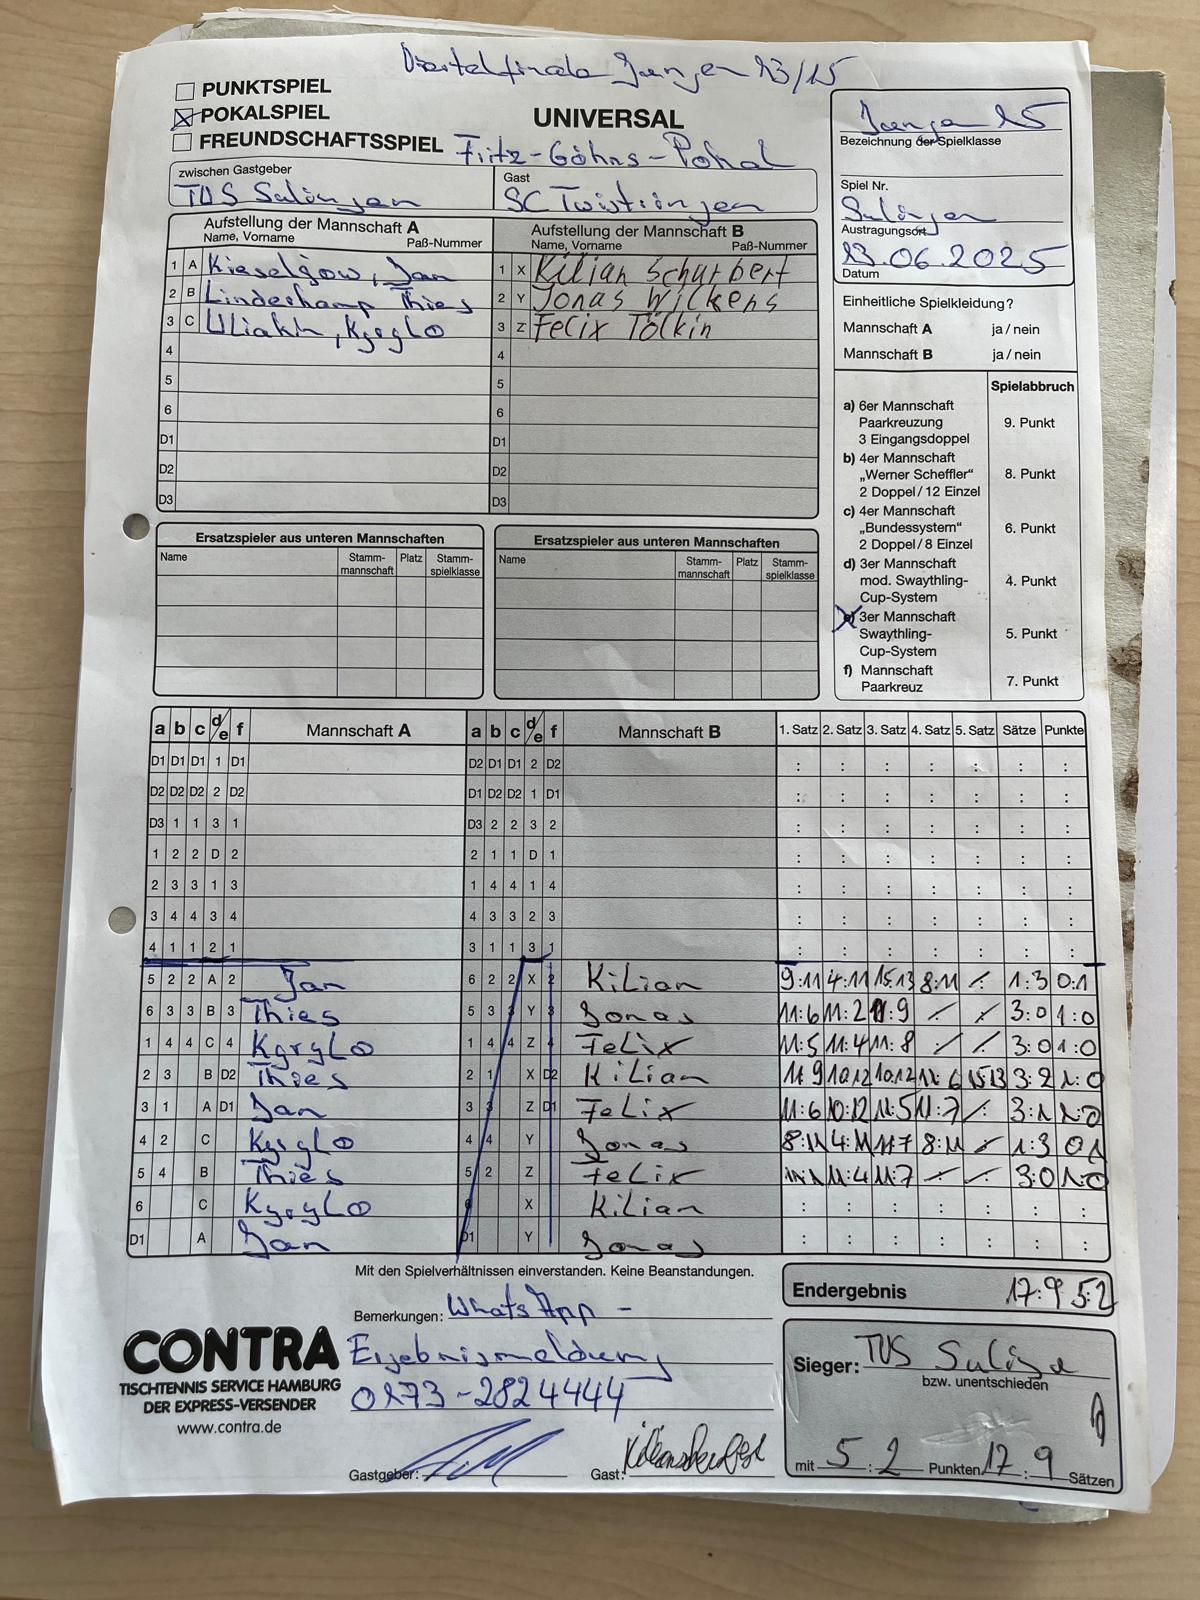 Viertelfinale Jungen 13/15
PUNKTSPIEL
POKALSPIEL
FREUNDSCHAFTSSPIEL
UNIVERSAL
Fritz-Göhns-Pokal
Jungen 15
Bezeichnung der Spielklasse
Spiel Nr.
Sulingen
Austragungsort
13.06.2025
Datum
zwischen Gastgeber
TUS Sulingen
Gast
SC Twistringen
Aufstellung der Mannschaft A
Name, Vorname Paß-Nummer
1 A Kieselgow, Jan
2 B Lindeskamp Thies
3 C Kyrylo
4
5
6
D1
D2
D3
Aufstellung der Mannschaft B
Name, Vorname Paß-Nummer
1 X Kilian Schubert
2 Y Jonas Wilkens
3 Z Felix Tölkin
4
5
6
D1
D2
D3
Einheitliche Spielkleidung?
Mannschaft A ja/nein
Mannschaft B ja/nein
Spielabbruch
a) 6er Mannschaft
Paarkreuzung 9. Punkt
3 Eingangsdoppel
b) 4er Mannschaft
„Werner Scheffler“ 8. Punkt
2 Doppel/12 Einzel
c) 4er Mannschaft
„Bundessystem“ 6. Punkt
2 Doppel/8 Einzel
d) 3er Mannschaft
mod. Swaythling- 4. Punkt
Cup-System
e) 3er Mannschaft
Swaythling- 5. Punkt
Cup-System
f) Mannschaft
Paarkreuz 7. Punkt
Ersatzspieler aus unteren Mannschaften
Name Stamm-mannschaft Platz Stamm-spielklasse
Ersatzspieler aus unteren Mannschaften
Name Stamm-mannschaft Platz Stamm-spielklasse
a b c d/e f Mannschaft A a b c d/e f Mannschaft B 1. Satz 2. Satz 3. Satz 4. Satz 5. Satz Sätze Punkte
D1 D1 D1 1 D1 D2 D1 D1 2 D2 : : : : : : :
D2 D2 D2 2 D2 D1 D2 D2 1 D1 : : : : : : :
D3 1 1 3 1 D3 2 2 3 2 : : : : : : :
1 2 2 D 2 2 1 1 D 1 : : : : : : :
2 3 3 1 3 1 4 4 1 4 : : : : : : :
3 4 4 3 4 4 3 3 2 3 : : : : : : :
4 1 1 2 1 3 1 1 3 1 : : : : : : :
5 2 2 A 2 Jan 6 2 2 X 2 Kilian 9:11 4:11 15:13 8:11 : 1:3 0:1
6 3 3 B 3 Thies 5 3 3 Y 3 Jonas 11:6 11:2 11:9 : : 3:0 1:0
1 4 4 C 4 Kyrylo 1 4 4 Z 4 Felix 11:5 11:4 11:8 : : 3:0 1:0
2 3 B D2 Thies 2 1 X D2 Kilian 11:9 10:12 10:12 11:6 15:13 3:2 1:0
3 1 A D1 Jan 3 3 Z D1 Felix 11:6 10:12 11:5 11:7 : 3:1 1:0
4 2 C Kyrylo 4 4 Y Jonas 8:11 4:11 11:7 8:11 : 1:3 0:1
5 4 B Thies 5 2 Z Felix 11:1 11:4 11:7 : : 3:0 1:0
6 C Kyrylo 6 X Kilian : : : : : : :
D1 A Jan D1 Y Jonas : : : : : : :
Mit den Spielverhältnissen einverstanden. Keine Beanstandungen.
Bemerkungen: WhatsApp -
Ergebnismeldung
0173-2824444
Endergebnis 17:9 5:2
CONTRA
TISCHTENNIS SERVICE HAMBURG
DER EXPRESS-VERSENDER
www.contra.de
Gastgeber:
Gast:
Sieger: TUS Sulingen
bzw. unentschieden
mit 5 : 2 Punkten 17 : 9 Sätzen